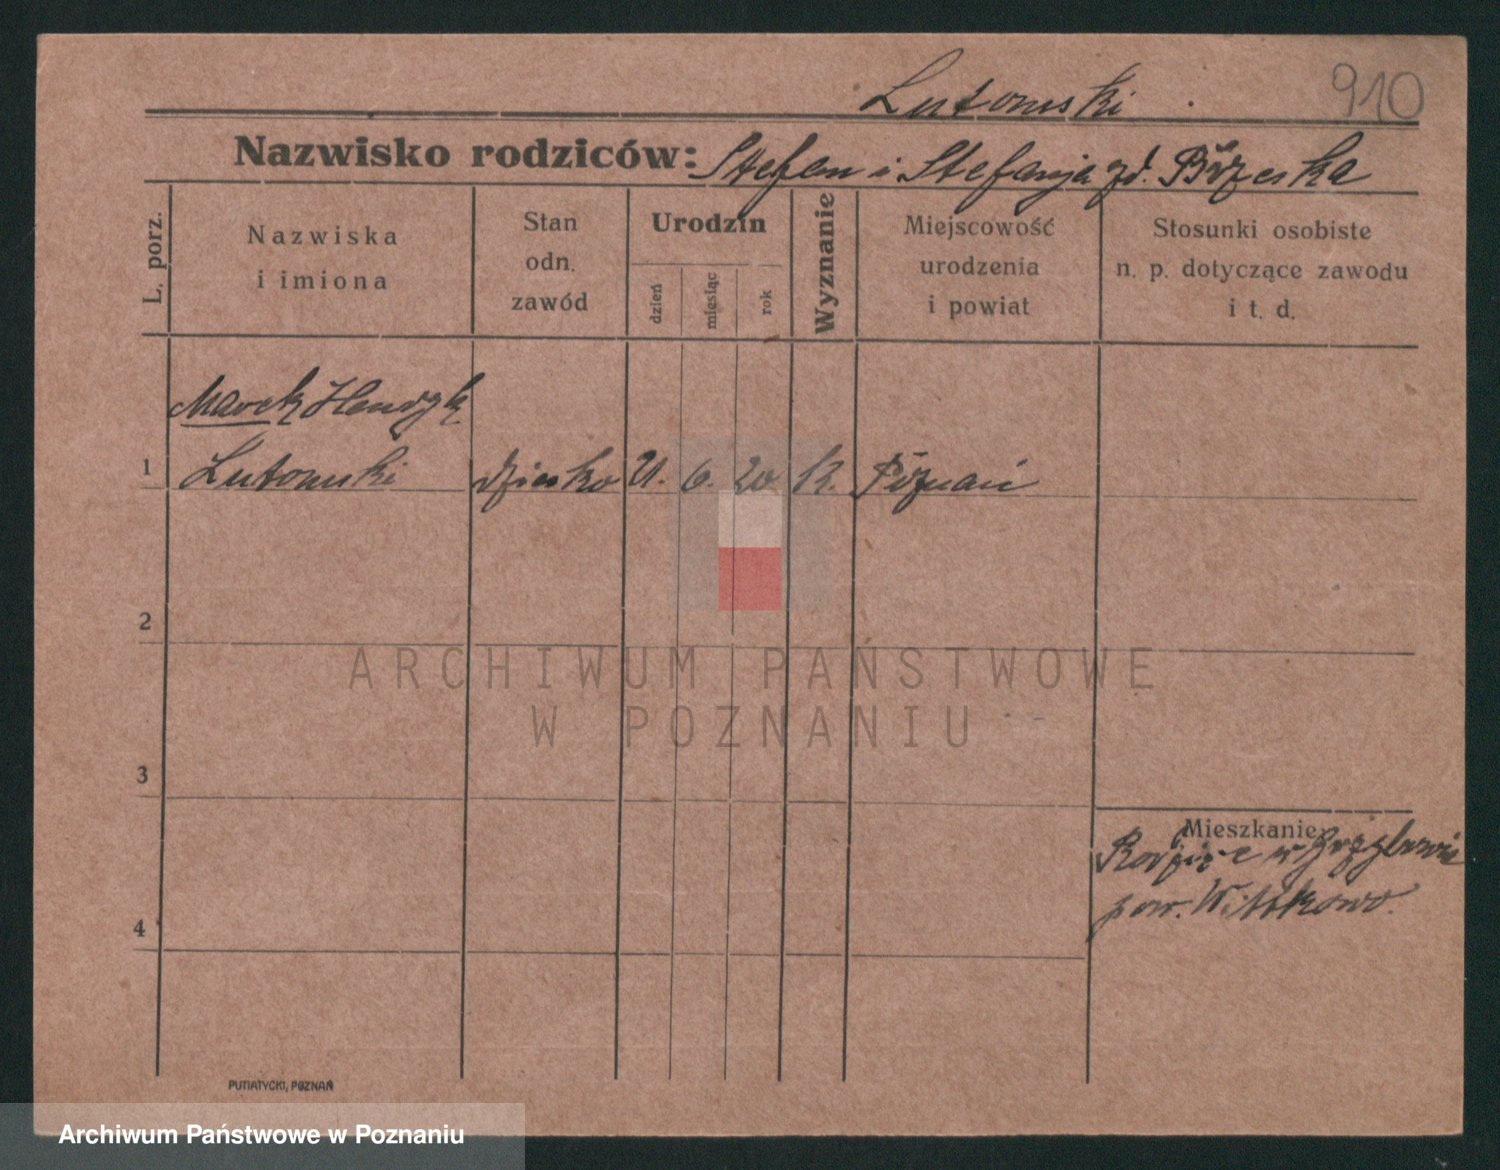 Lutomski 910
Nazwisko rodziców: Stefan i Stefanja zd. Brzeska
L. porz.
Nazwiska
i imiona
Stan
odn.
zawód
Urodzin
dzień
miesiąc
rok
Wyznanie
Miejscowość
urodzenia
i powiat
Stosunki osobiste
n. p. dotyczące zawodu
i t. d.
Marek Henryk
1 Lutomski dziecko 21. 6. 20 k. Poznań
2
ARCHIWUM PAŃSTWOWE
W POZNANIU
3
Mieszkanie
Rodzice w
pow. Witkowo.
4
PUTIATYCKI, POZNAŃ
Archiwum Państwowe w Poznaniu